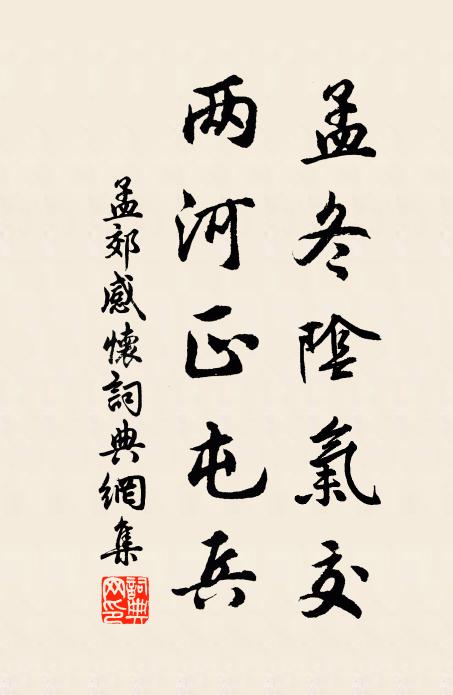 孟冬陰氣交
两河正屯兵
孟郊感懷詞典網集
詞典网印